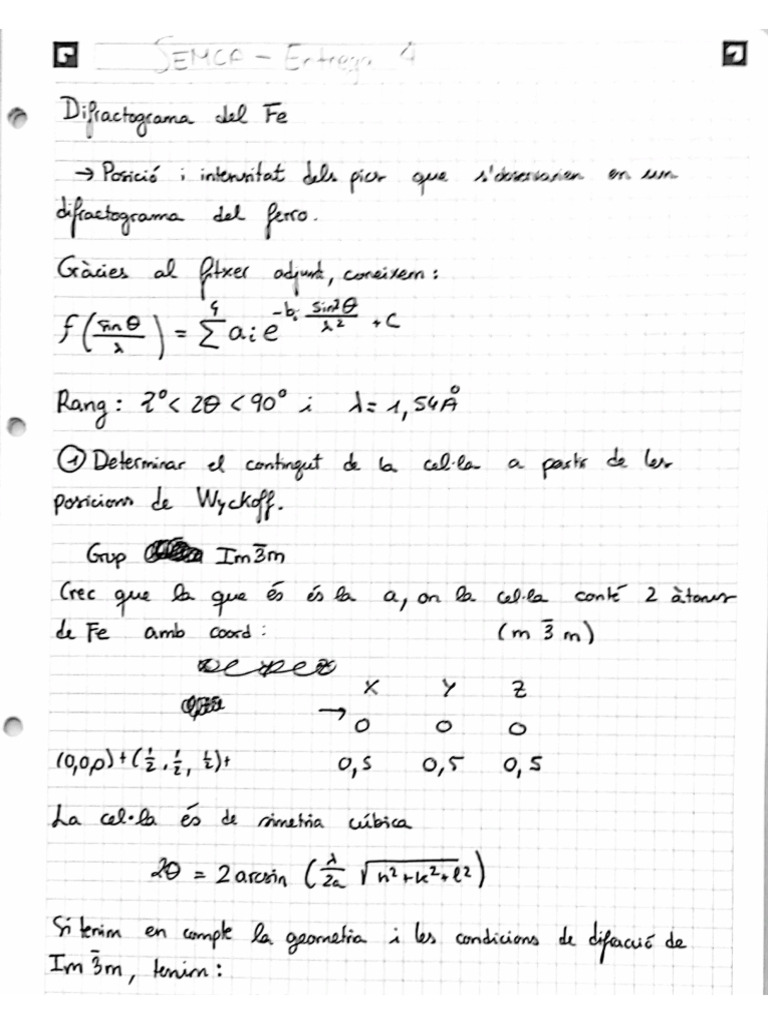 SEMCA - Entrega 4
Difractograma del Fe
→ Posició i intensitat dels pics que s'observarien en un
difractograma del ferro.
Gràcies al fitxer adjunt, coneixem:
f(sinθ/λ) = Σ⁴ aᵢ e^(-bᵢ sin²θ/λ²) + C
Rang: 2° < 2θ < 90° i λ = 1,54Å
① Determinar el contingut de la cel·la a partir de les
posicions de Wyckoff.
Grup Im3̄m
Crec que la que és és la a, on la cel·la conté 2 àtoms
de Fe amb coord: (m 3̄ m)
X Y Z
→ 0 0 0
(0,0,0)+(1/2, 1/2, 1/2)+ 0,5 0,5 0,5
La cel·la és de simetria cúbica
2θ = 2 arcsin (λ/2a √(h²+k²+l²))
Si tenim en compte la geometria i les condicions de difracció de
Im3̄m, tenim: